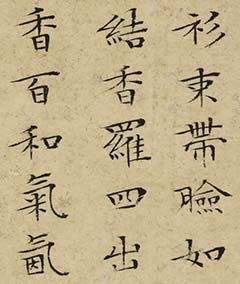 衫束帶瞼如
結香羅四出
香百和氣氤